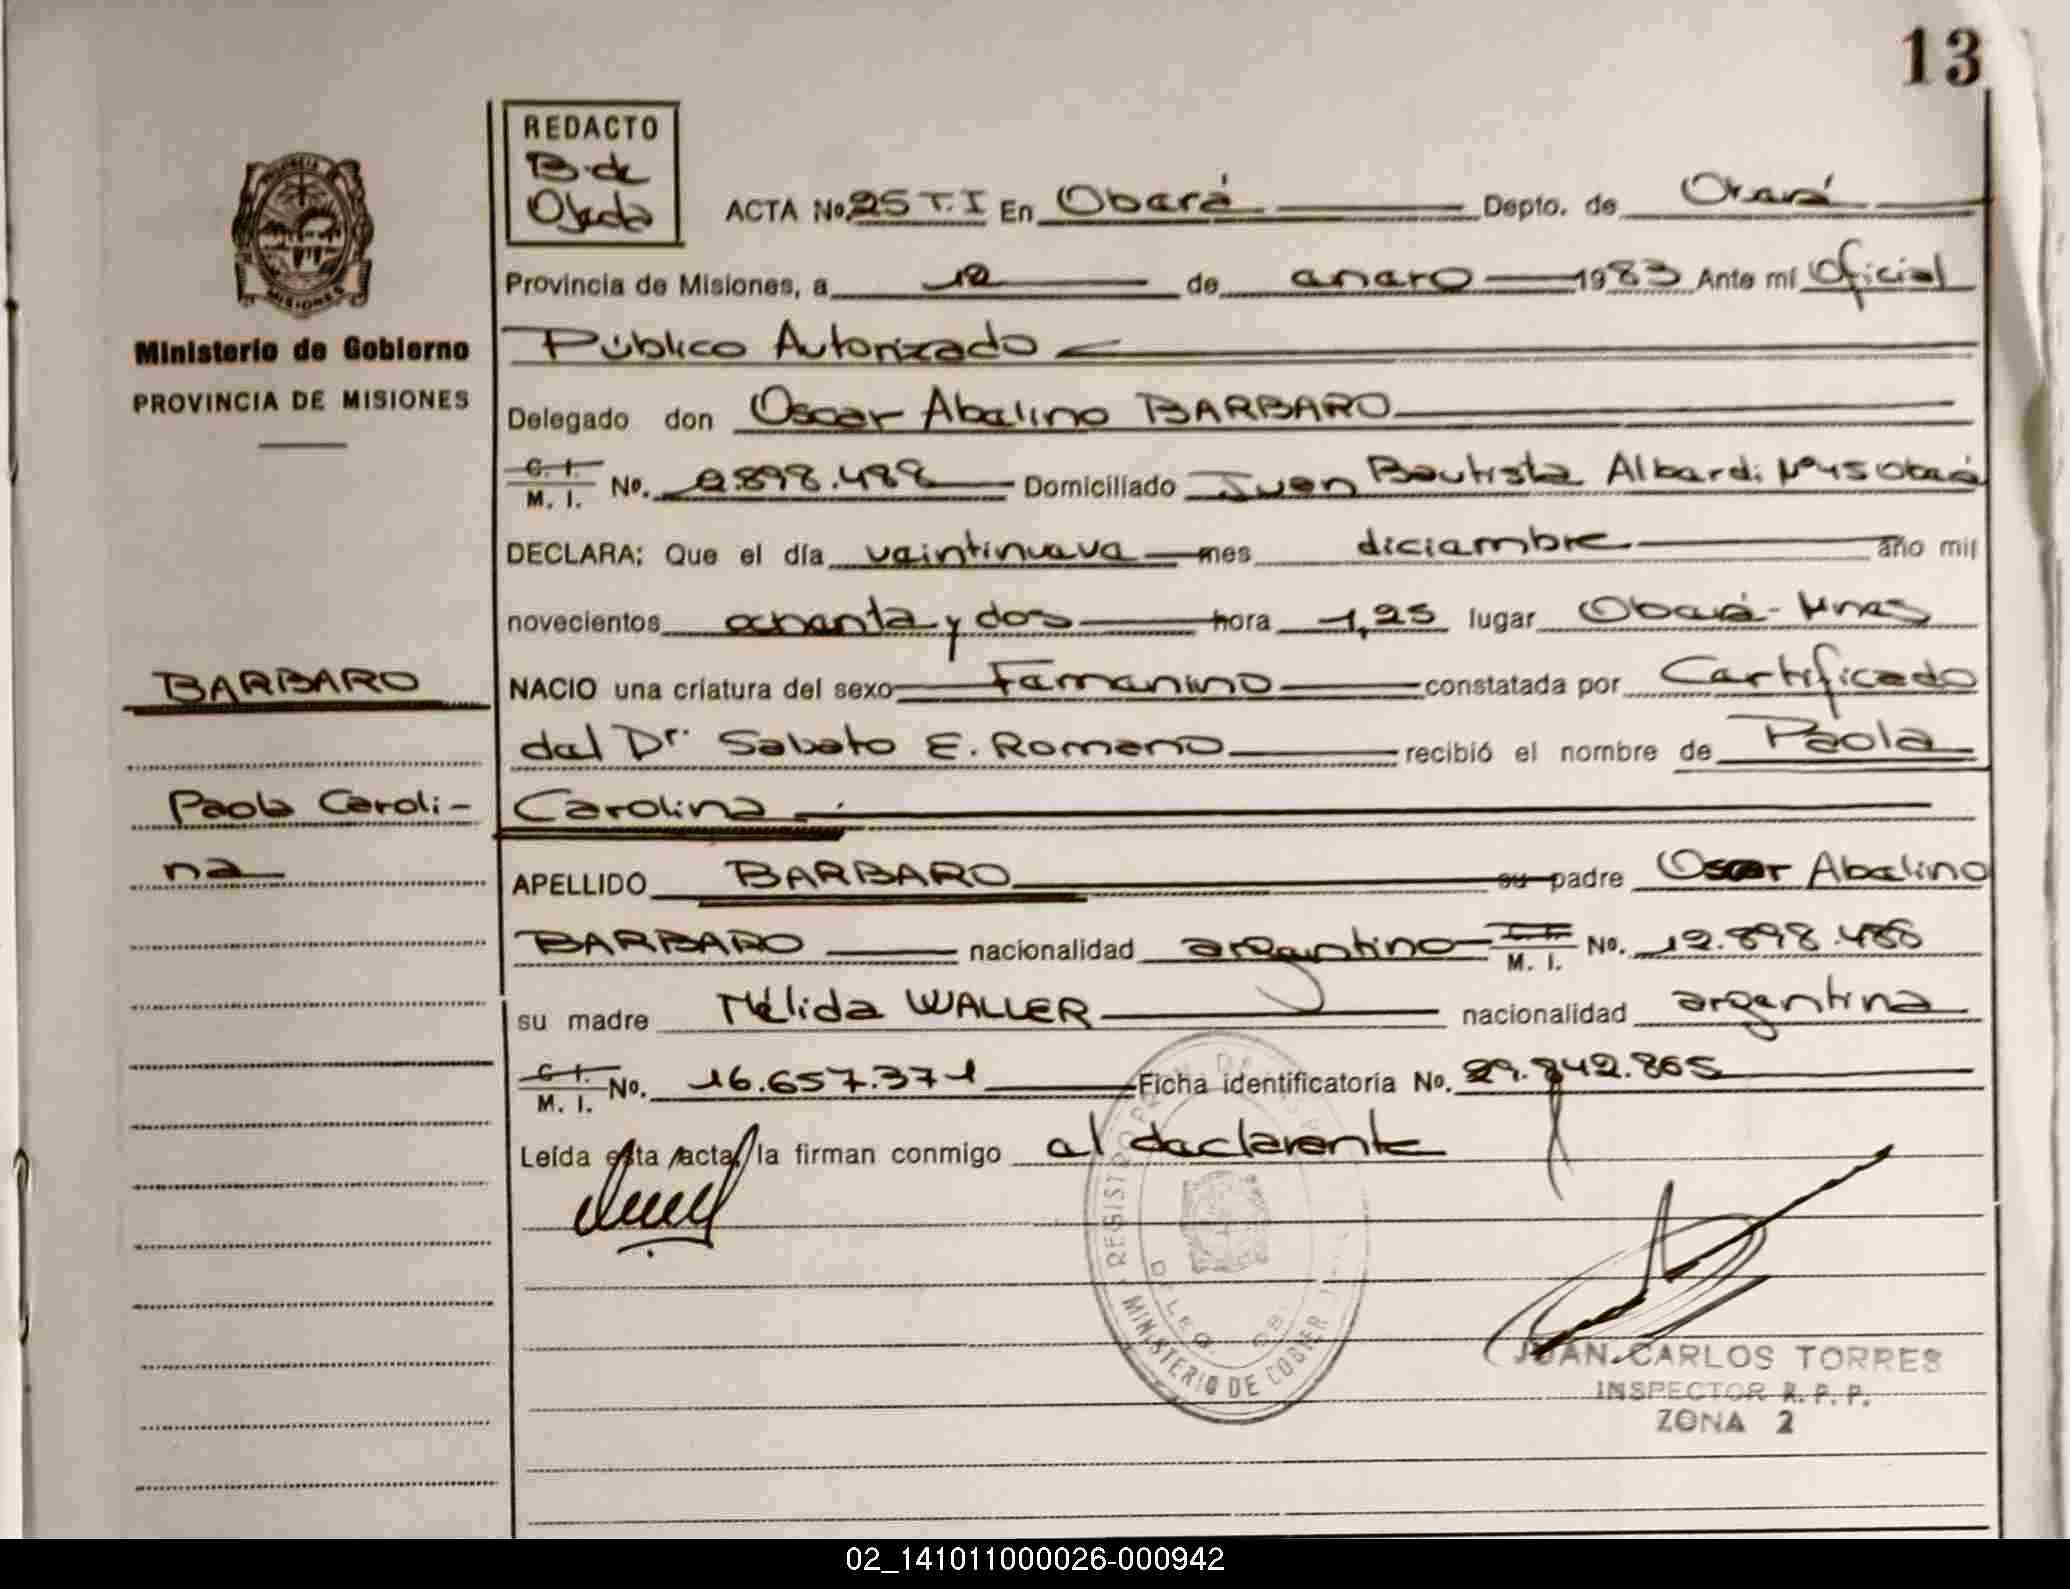 13
REDACTO
B. de
Ojeda
ACTA No. 25 T.I En Oberá Depto. de Oberá
Provincia de Misiones, a 12 de enero 1983 Ante mí Oficial
Ministerio de Gobierno
PROVINCIA DE MISIONES
Público Autorizado
Delegado don Oscar Abelino BARBARO
C. I.
M. I. No. 12.898.488 Domiciliado Juan Bautista Alberdi Nº45 Oberá
DECLARA: Que el día veintinueve mes diciembre año mil
novecientos ochenta y dos hora 1,25 lugar Oberá-Mnes
NACIO una criatura del sexo Femenino constatada por Certificado
del Dr. Sabato E. Romano recibió el nombre de Paola
Carolina
BARBARO
Paola Caroli-
na
APELLIDO BARBARO su padre Oscar Abelino
BARBARO nacionalidad argentino M. I. No. 12.898.488
su madre Nélida WALLER nacionalidad argentina
C. I.
M. I. No. 16.657.371 Ficha identificatoria No. 29.842.865
Leída esta acta, la firman conmigo el declarante
MINISTERIO DE GOBIER
JUAN CARLOS TORRES
INSPECTOR R. P. P.
ZONA 2
02_141011000026-000942